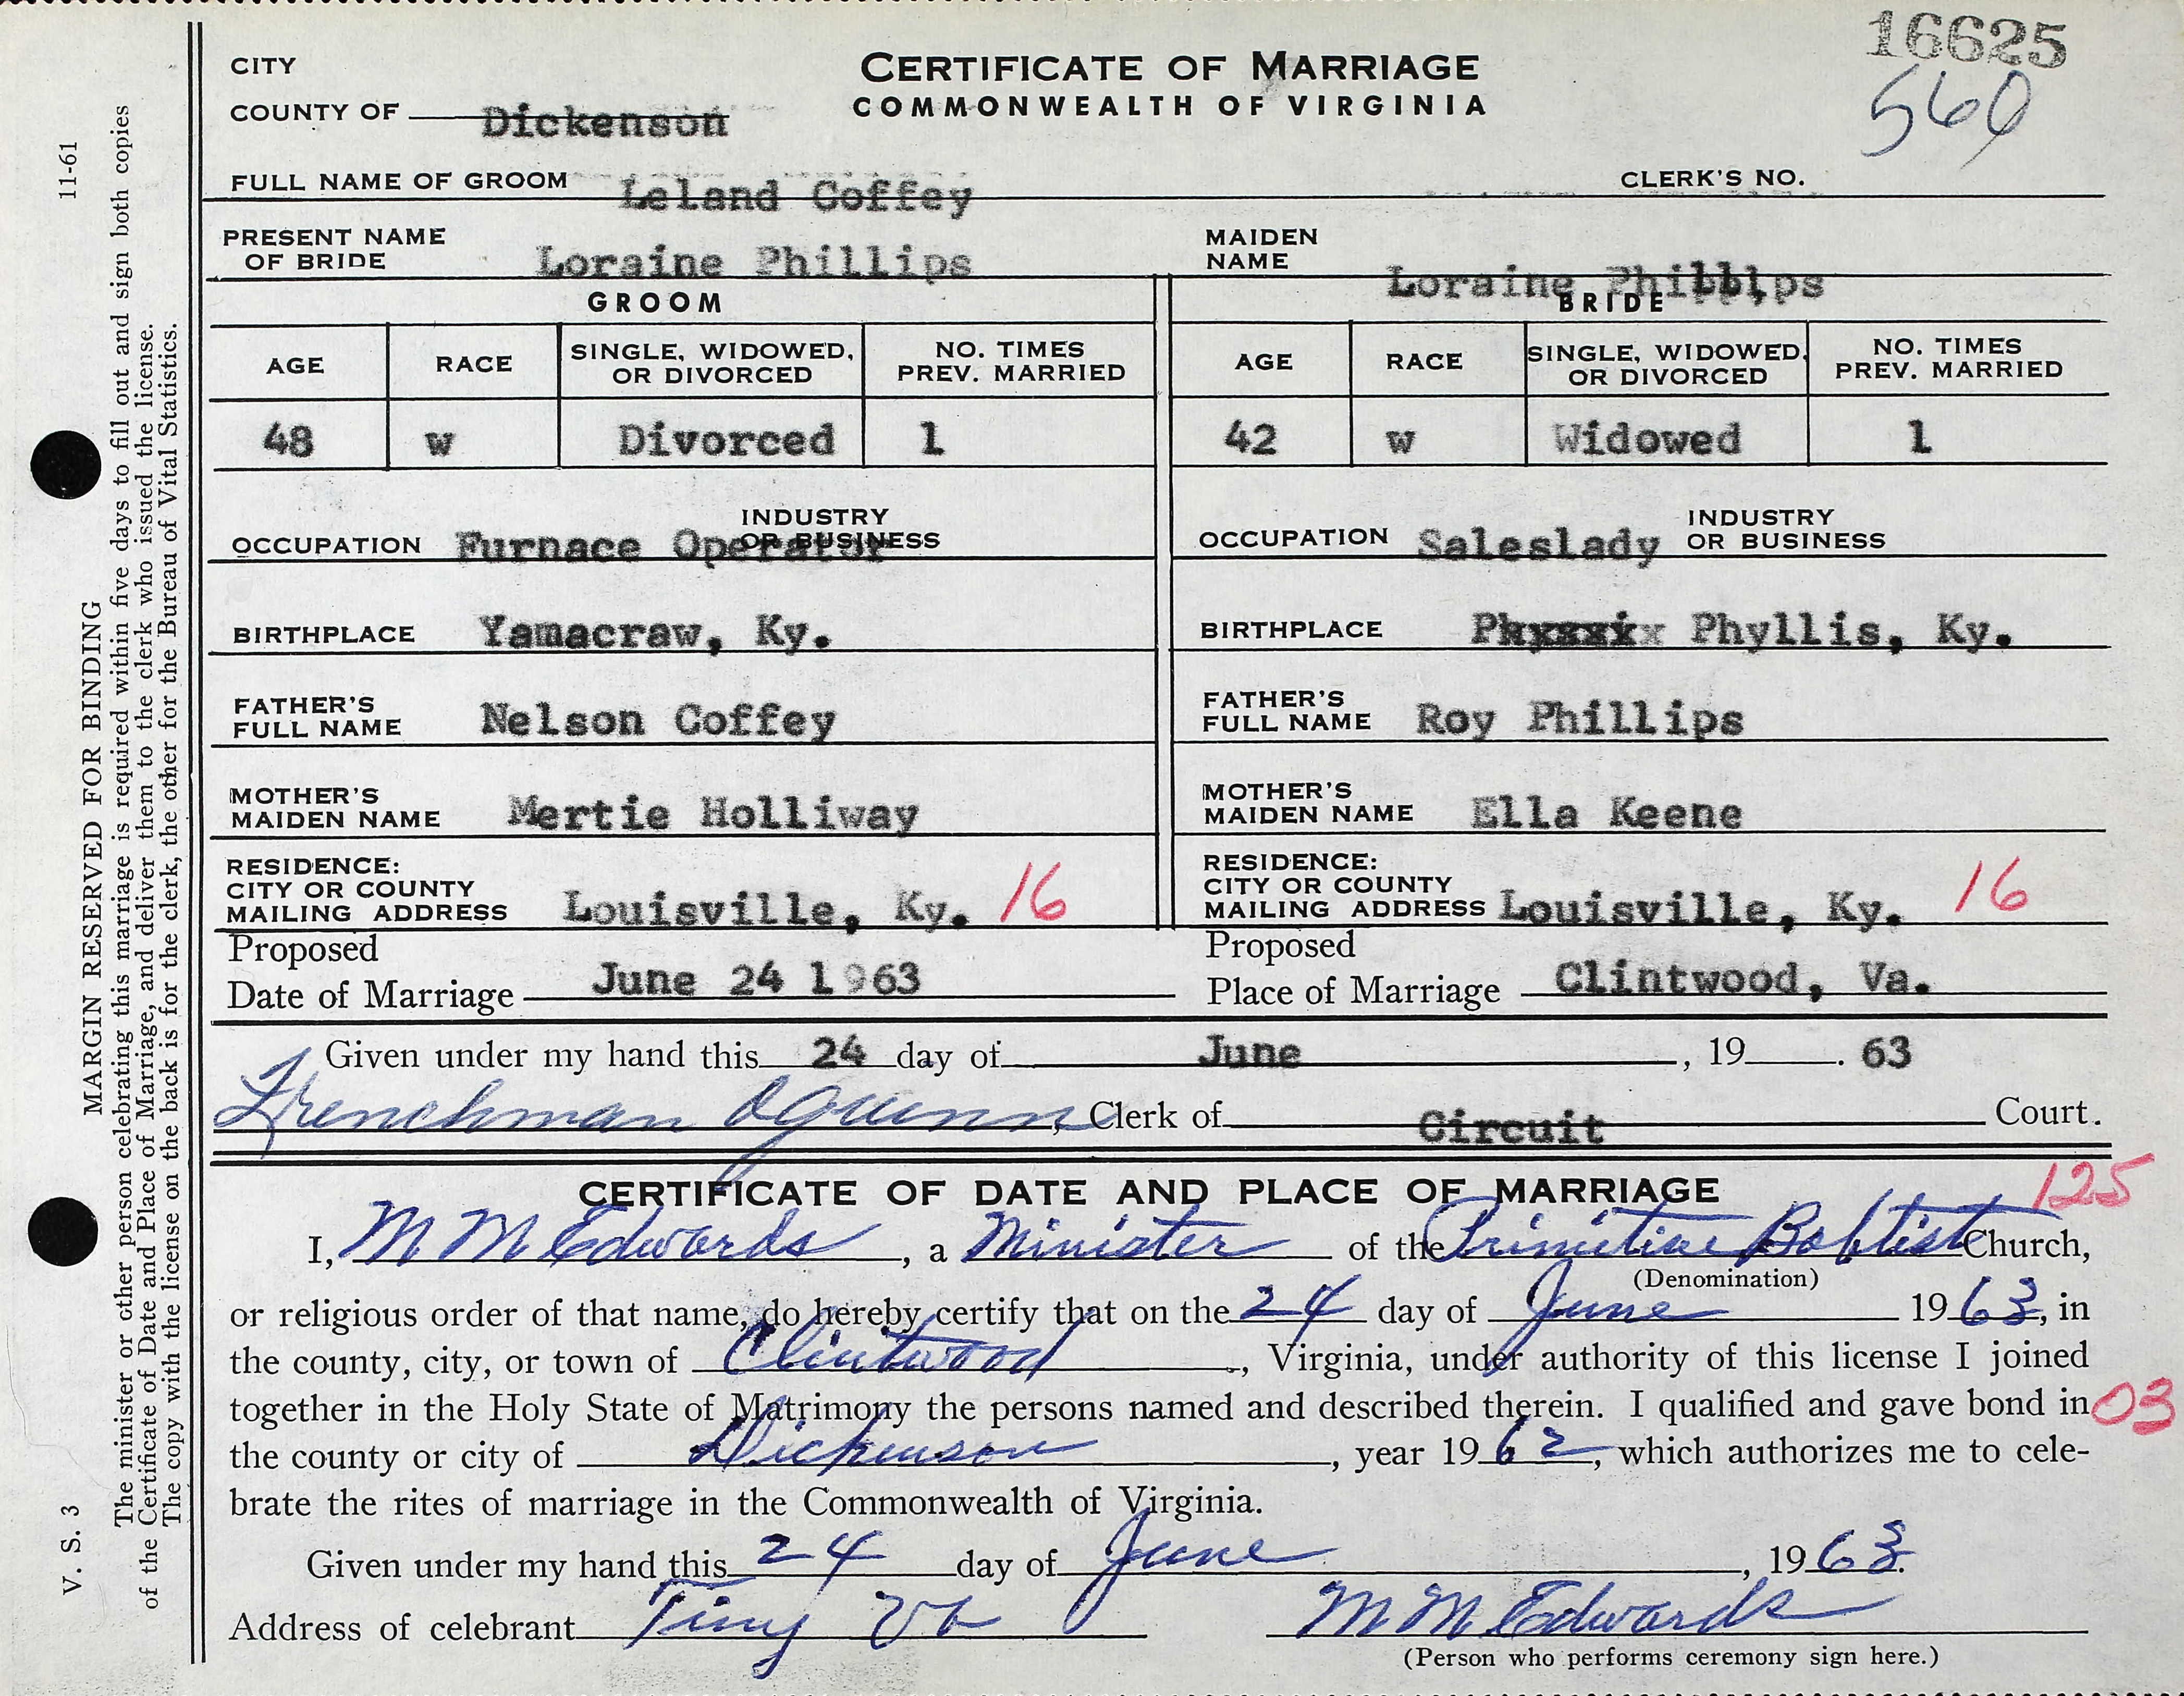 16625
560
CITY
COUNTY OF Dickenson
CERTIFICATE OF MARRIAGE
COMMONWEALTH OF VIRGINIA
FULL NAME OF GROOM Leland Coffey CLERK'S NO.
PRESENT NAME OF BRIDE Loraine Phillips MAIDEN NAME Loraine Phillips
GROOM BRIDE
AGE RACE SINGLE, WIDOWED, OR DIVORCED NO. TIMES PREV. MARRIED AGE RACE SINGLE, WIDOWED, OR DIVORCED NO. TIMES PREV. MARRIED
48 w Divorced 1 42 w Widowed 1
OCCUPATION Furnace Operator INDUSTRY OR BUSINESS OCCUPATION Saleslady INDUSTRY OR BUSINESS
BIRTHPLACE Yamacraw, Ky. BIRTHPLACE Phyllis, Ky.
FATHER'S FULL NAME Nelson Coffey FATHER'S FULL NAME Roy Phillips
MOTHER'S MAIDEN NAME Mertie Holliway MOTHER'S MAIDEN NAME Ella Keene
RESIDENCE: CITY OR COUNTY MAILING ADDRESS Louisville, Ky. 16 RESIDENCE: CITY OR COUNTY MAILING ADDRESS Louisville, Ky. 16
Proposed Date of Marriage June 24 1963 Proposed Place of Marriage Clintwood, Va.
Given under my hand this 24 day of June, 19 . 63
Frenchman Oquinn, Clerk of Circuit Court.
CERTIFICATE OF DATE AND PLACE OF MARRIAGE 125
I, M M Edwards, a Minister of the Primitive Baptist Church,
(Denomination)
or religious order of that name, do hereby certify that on the 24 day of June 1963, in
the county, city, or town of Clintwood, Virginia, under authority of this license I joined
together in the Holy State of Matrimony the persons named and described therein. I qualified and gave bond in 03
the county or city of Dickenson, year 1962, which authorizes me to cele-
brate the rites of marriage in the Commonwealth of Virginia.
Given under my hand this 24 day of June, 1963.
Address of celebrant Tiny Va M M Edwards
(Person who performs ceremony sign here.)
V. S. 3 11-61
MARGIN RESERVED FOR BINDING
The minister or other person celebrating this marriage is required within five days to fill out and sign both copies
of the Certificate of Date and Place of Marriage, and deliver them to the clerk who issued the license.
The copy with the license on the back is for the clerk, the other for the Bureau of Vital Statistics.